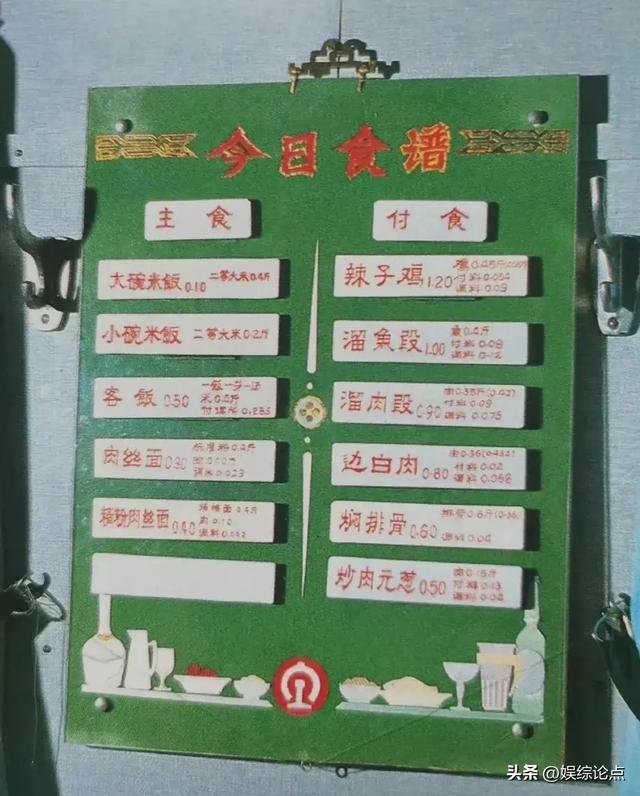 今日食谱
主食
大碗米飯 0.10 二等大米0.4斤
小碗米飯 二等大米0.2斤
客飯 0.50 一飯一芬一汤
米0.4斤
0.285
肉丝面 0.30 0.4斤
0.023
精粉肉丝面 0.40 0.4斤
肉0.10
调料0.042
付食
辣子鸡 1.20 鸡0.45斤
付料0.054
调料0.09
溜魚段 1.00 魚0.4斤
付料0.08
调料0.12
溜肉段 0.90 肉0.35斤(0.42)
付料0.09
调料0.075
边白肉 0.80 肉0.36(0.432)
付料0.02
调料0.068
焖排骨 0.60 排骨0.6斤(0.36)
调料0.04
炒肉元葱 0.50 肉0.15斤
付料0.13
调料0.04
头条 @娱综论点